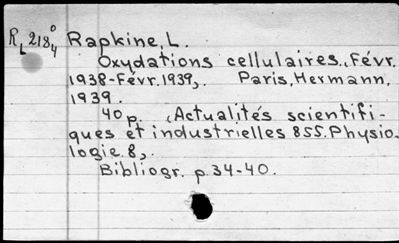 RL 218⁰4 Rapkine, L.
Oxydations cellulaires., Févr.
1938-Févr. 1939,. Paris, Hermann,
1939.
40 p. (Actualités scientifi-
ques et industrielles 855. Physio-
logie. 8,.
Bibliogr. p. 34-40.